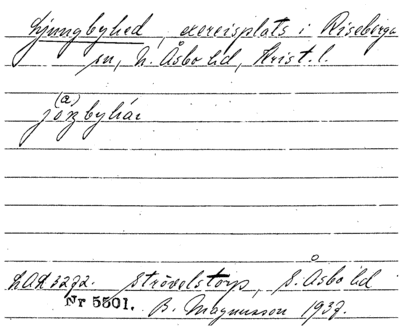 Ljungbyhed, exercisplats i Riseberga
sn, N. Åsbo hd, Krist. l.
(a)
LAL 3272. Strövelstorp, S. Åsbo hd
Nr 5501. B. Magnusson 1937.